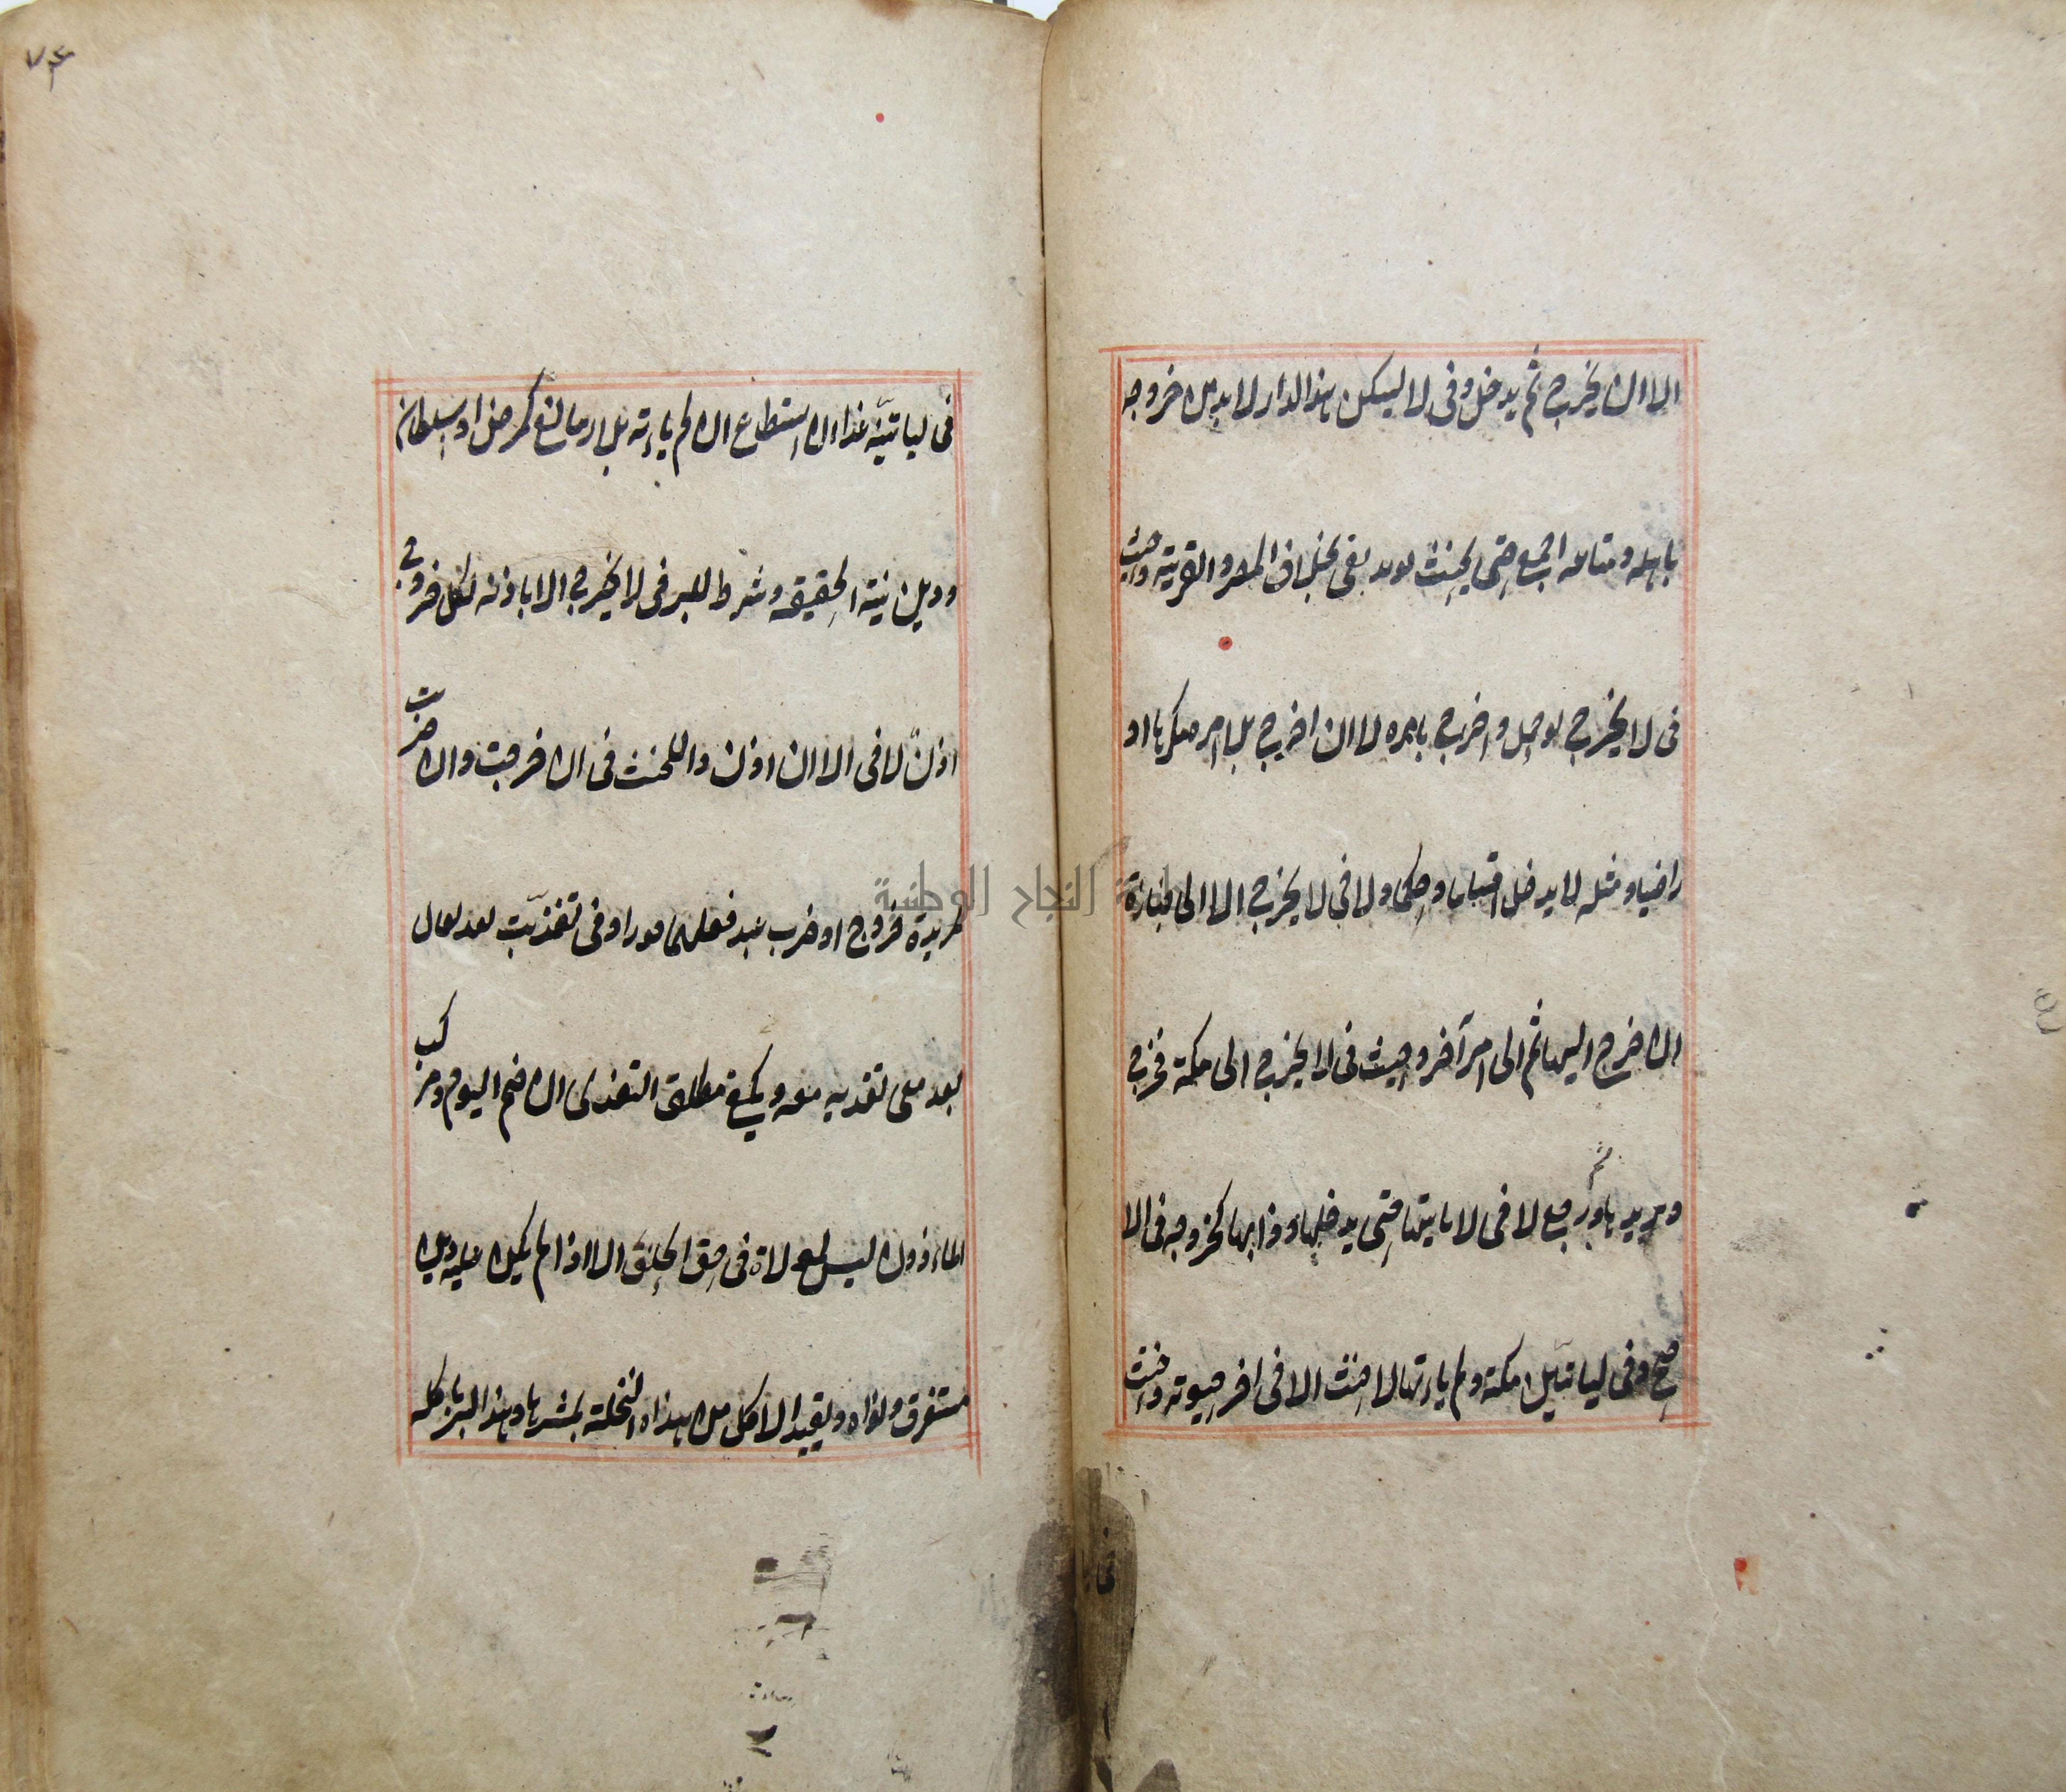 الا ان يخرج ثم يدخل وفى لا يسكن هذا الدار لا بد من خروجه
باهله ومتاعه اجمع حتى يحنث بوتد بقى بخلاف المصر والقرية وحنث
فى لا يخرج لو حمل واخرج بامره لا ان اخرج بلا امر مكرها او
راضيا ومثله لا يدخل اقساما وحكما ولا فى لا يخرج الا الى جنازة
ان خرج اليها ثم الى امر آخر وحنث فى لا يخرج الى مكة فخرج
ويريدها ثم رجع لا فى لا ياتيها حتى يدخلها وذهابها كخروجه فى الا
صح وفى لياتين مكة ولم ياتها لا حنث الا فى اخر حيوته وحنث
٧۴
فى لياتينه غدا ان استطاع ان لم ياته بلا مانع كمرض او سلطان
ودين نية الحقيقة وشرط للبر فى لا يخرج الا باذنه لكل خروج
اذن لا فى الا ان اذن وللحنث فى ان خرجت وان ضربت
لمريدة خروج او ضرب عبد فعلهما فورا وفى تغديت بعد تعال
تغد معى تغديه معه ويكفى مطلق التغدى ان ضم اليوم ومركب
الماذون ليس لمولاه فى حق الحلف الا اذا لم يكن عليه دين
مستغرق ونواه ويقيد الاكل من هذه النخلة بثمرها وهذا البر باكله
النجاح الوطنية